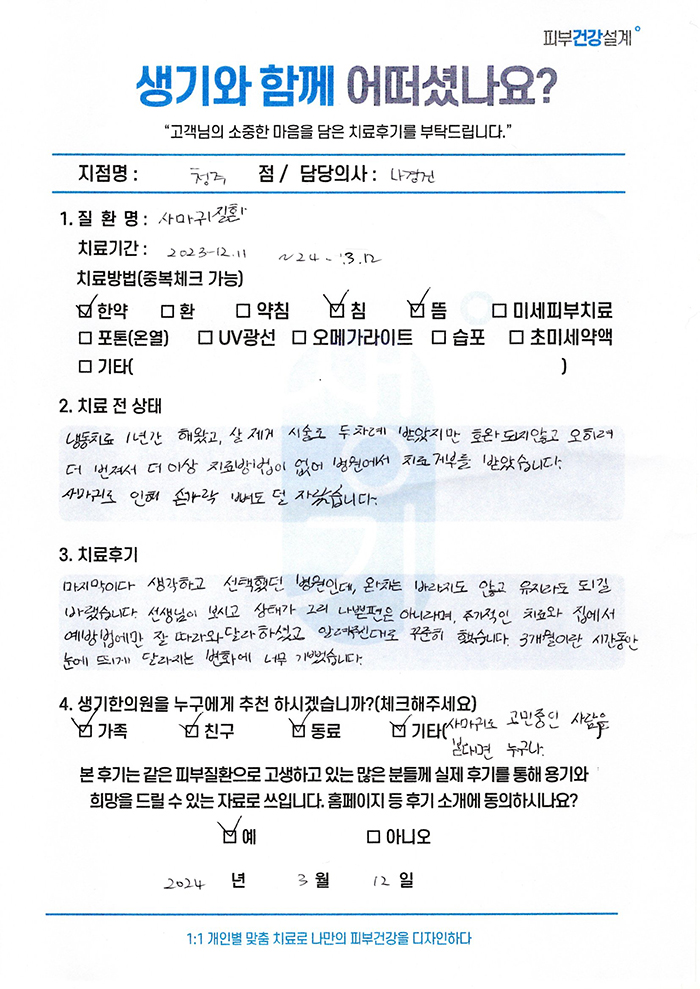 피부건강설계
생기와 함께 어떠셨나요?
“고객님의 소중한 마음을 담은 치료후기를 부탁드립니다.”
지점명 : 청주 점 / 담당의사 : 나경건
1. 질 환 명 : 사마귀질환
치료기간 : 2023-12.11 ~24-.3.12
치료방법(중복체크 가능)
☑ 한약 □ 환 □ 약침 ☑ 침 ☑ 뜸 □ 미세피부치료
□ 포톤(온열) □ UV광선 □ 오메가라이트 □ 습포 □ 초미세약액
□ 기타( )
2. 치료 전 상태
냉동치료 1년간 해왔고, 살 제거 시술도 두차례 받았지만 호전 되지않고 오히려
더 번져서 더이상 치료방법이 없어 병원에서 치료거부를 받았습니다.
사마귀로 인해 손가락 뼈도 덜 자랐습니다.
3. 치료후기
마지막이다 생각하고 선택했던 병원인데, 완치는 바라지도 않고 유지라도 되길
바랬습니다. 선생님이 보시고 상태가 그리 나쁜편은 아니라며, 주기적인 치료와 집에서
예방법에만 잘 따라와달라하셨고 알려주신대로 꾸준히 했습니다. 3개월이란 시간동안
눈에 띄게 달라지는 변화에 너무 기뻤습니다.
4. 생기한의원을 누구에게 추천 하시겠습니까?(체크해주세요)
☑ 가족 ☑ 친구 ☑ 동료 ☑ 기타(사마귀로 고민중인 사람을
본다면 누구나.)
본 후기는 같은 피부질환으로 고생하고 있는 많은 분들께 실제 후기를 통해 용기와
희망을 드릴 수 있는 자료로 쓰입니다. 홈페이지 등 후기 소개에 동의하시나요?
☑ 예 □ 아니오
2024 년 3 월 12 일
1:1 개인별 맞춤 치료로 나만의 피부건강을 디자인하다